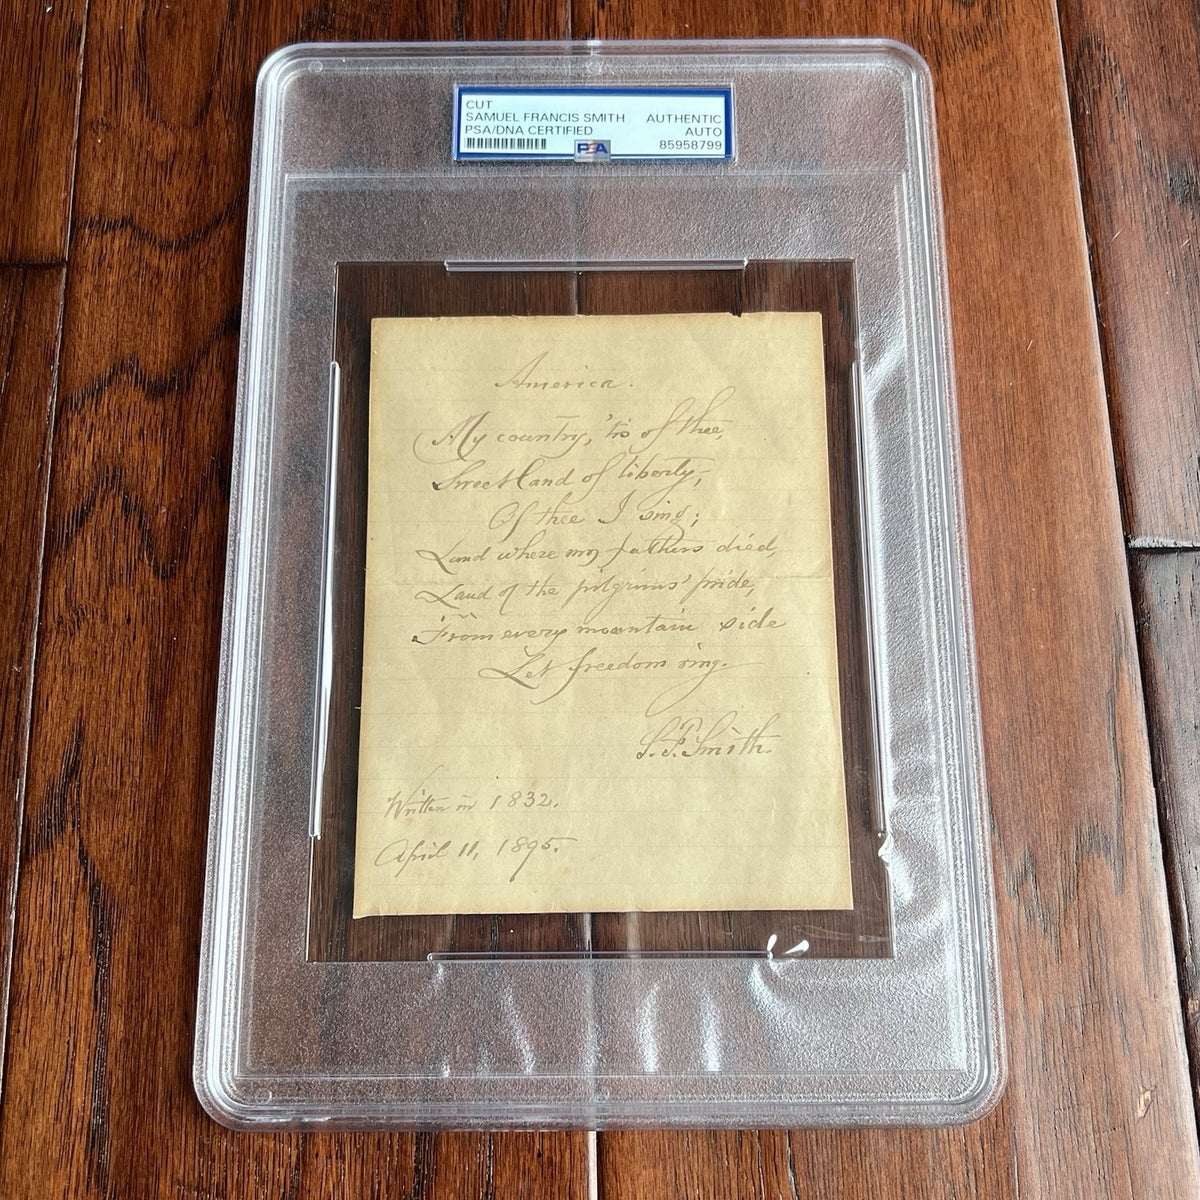 CUT
SAMUEL FRANCIS SMITH AUTHENTIC
PSA/DNA CERTIFIED AUTO
PSA 85958799
America.
My country, 'tis of thee,
Sweet land of liberty,
Of thee I sing;
Land where my fathers died,
Land of the pilgrims' pride,
From every mountain side
Let freedom ring.
S. F. Smith
Written in 1832.
April 11, 1895.